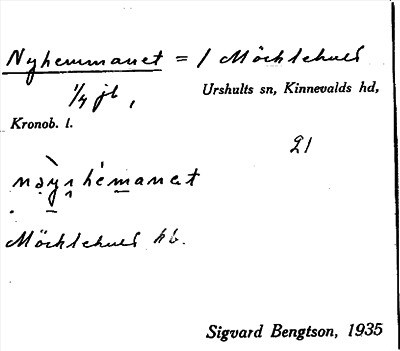 Nyhemmanet = / Möcklehult
1/4 jb, Urshults sn, Kinnevalds hd,
Kronob. l.
21
Möcklehult hb.
Sigvard Bengtson, 1935